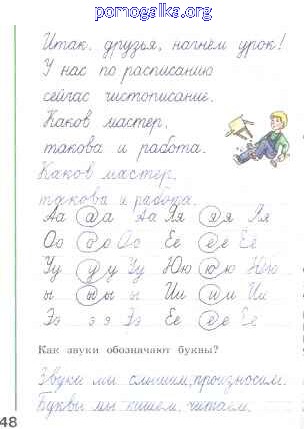 pomogalka.org
Итак, друзья, начнём урок!
У нас по расписанию
сейчас чистописание.
Каков мастер,
такова и работа.
Каков мастер,
такова и работа.
Аа а а Аа Яя я я Яя
Оо о о Оо Ее е е Ее
Уу у у Уу Юю ю ю Юю
ы ы ы ы Ии и и Ии
Ээ э э Ээ Ее е е Ее
Как звуки обозначают буквы?
Звуки мы слышим, произносим.
Буквы мы пишем, читаем.
48